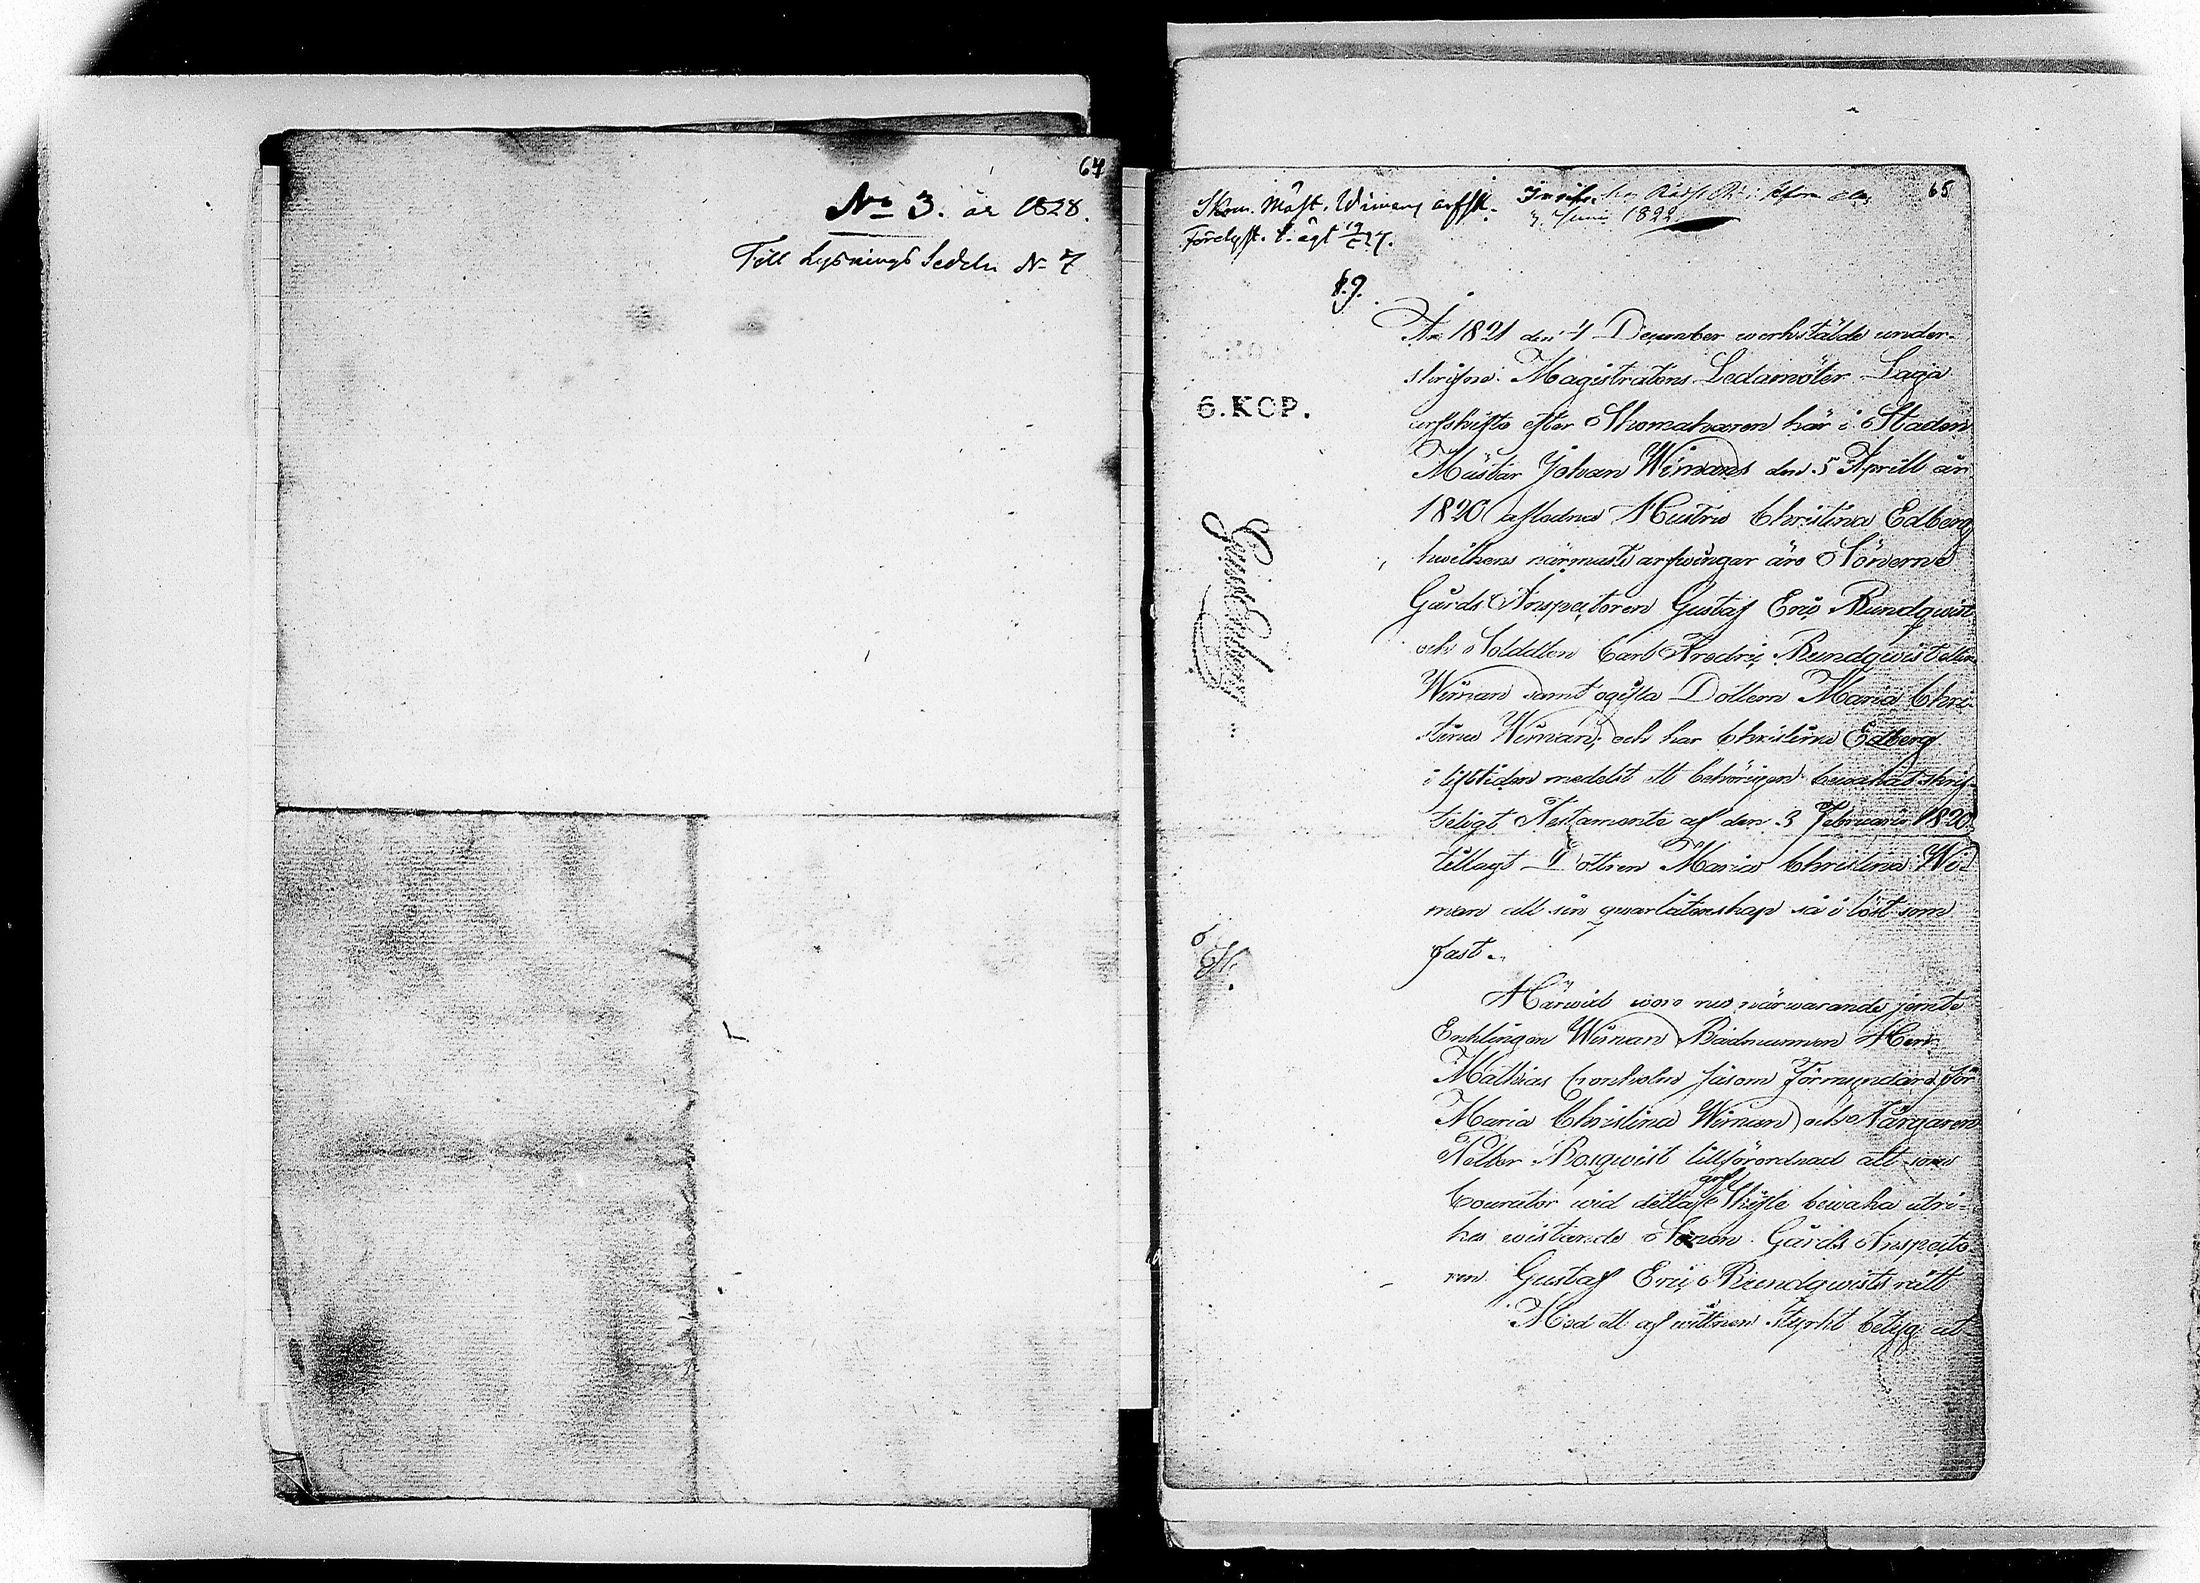 64
No 3. år 1828.
Till Lysnings Sedeln No 7
65
Skom. Mäst. Wimans arfsk.
4 Juni 1822
§. 9.
6. KOP.
År 1821 den 4 December werkstälde under-
skrifne Magistratens Ledamöter Laga
arfskifte efter Skomakaren här i Staden
Mästar Johan Wimans den 5 Aprill år
1820 afledna Hustru Christina Edberg
hwilkens närmaste arfwingar äro Sönerne
Gårds Inspectoren Gustaf Eric Rundqwist
och Soldaten Carl Fredric Rundqwist eller
Wiman samt ogifta Dottern Maria Chri-
stina Wiman, och har Christina Edberg
i lifstiden medelst ett behörigen bewakat skrif-
teligt Testamente af den 3 Februarii 1820
tillagt Dottren Maria Christina Wi-
man all sin qwarlåtenskap så i löst som
fast.
Härwid woro nu närwarande jemte
Enklingen Wiman Rådmannen Herr
Mathias Cronholm såsom Förmyndare för
Maria Christina Wiman och Färgaren
Petter Rosqwist tillförordnad att som
Courator wid detta arf Skifte bewaka utri-
kes wistande Sonen Gårds Inspecto-
ren Gustaf Eric Rundqwists rätt
Med ett af wittnen styrkt betyg ut-